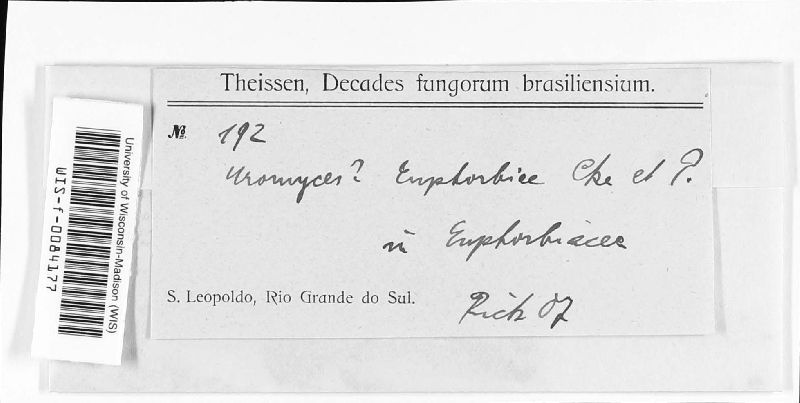 Theissen, Decades fungorum brasiliensium.
№ 192
Uromyces? Euphorbiae Cke et P.
in Euphorbiacea
S. Leopoldo, Rio Grande do Sul. Rick 07
University of Wisconsin-Madison (WIS)
WIS-f-0084177